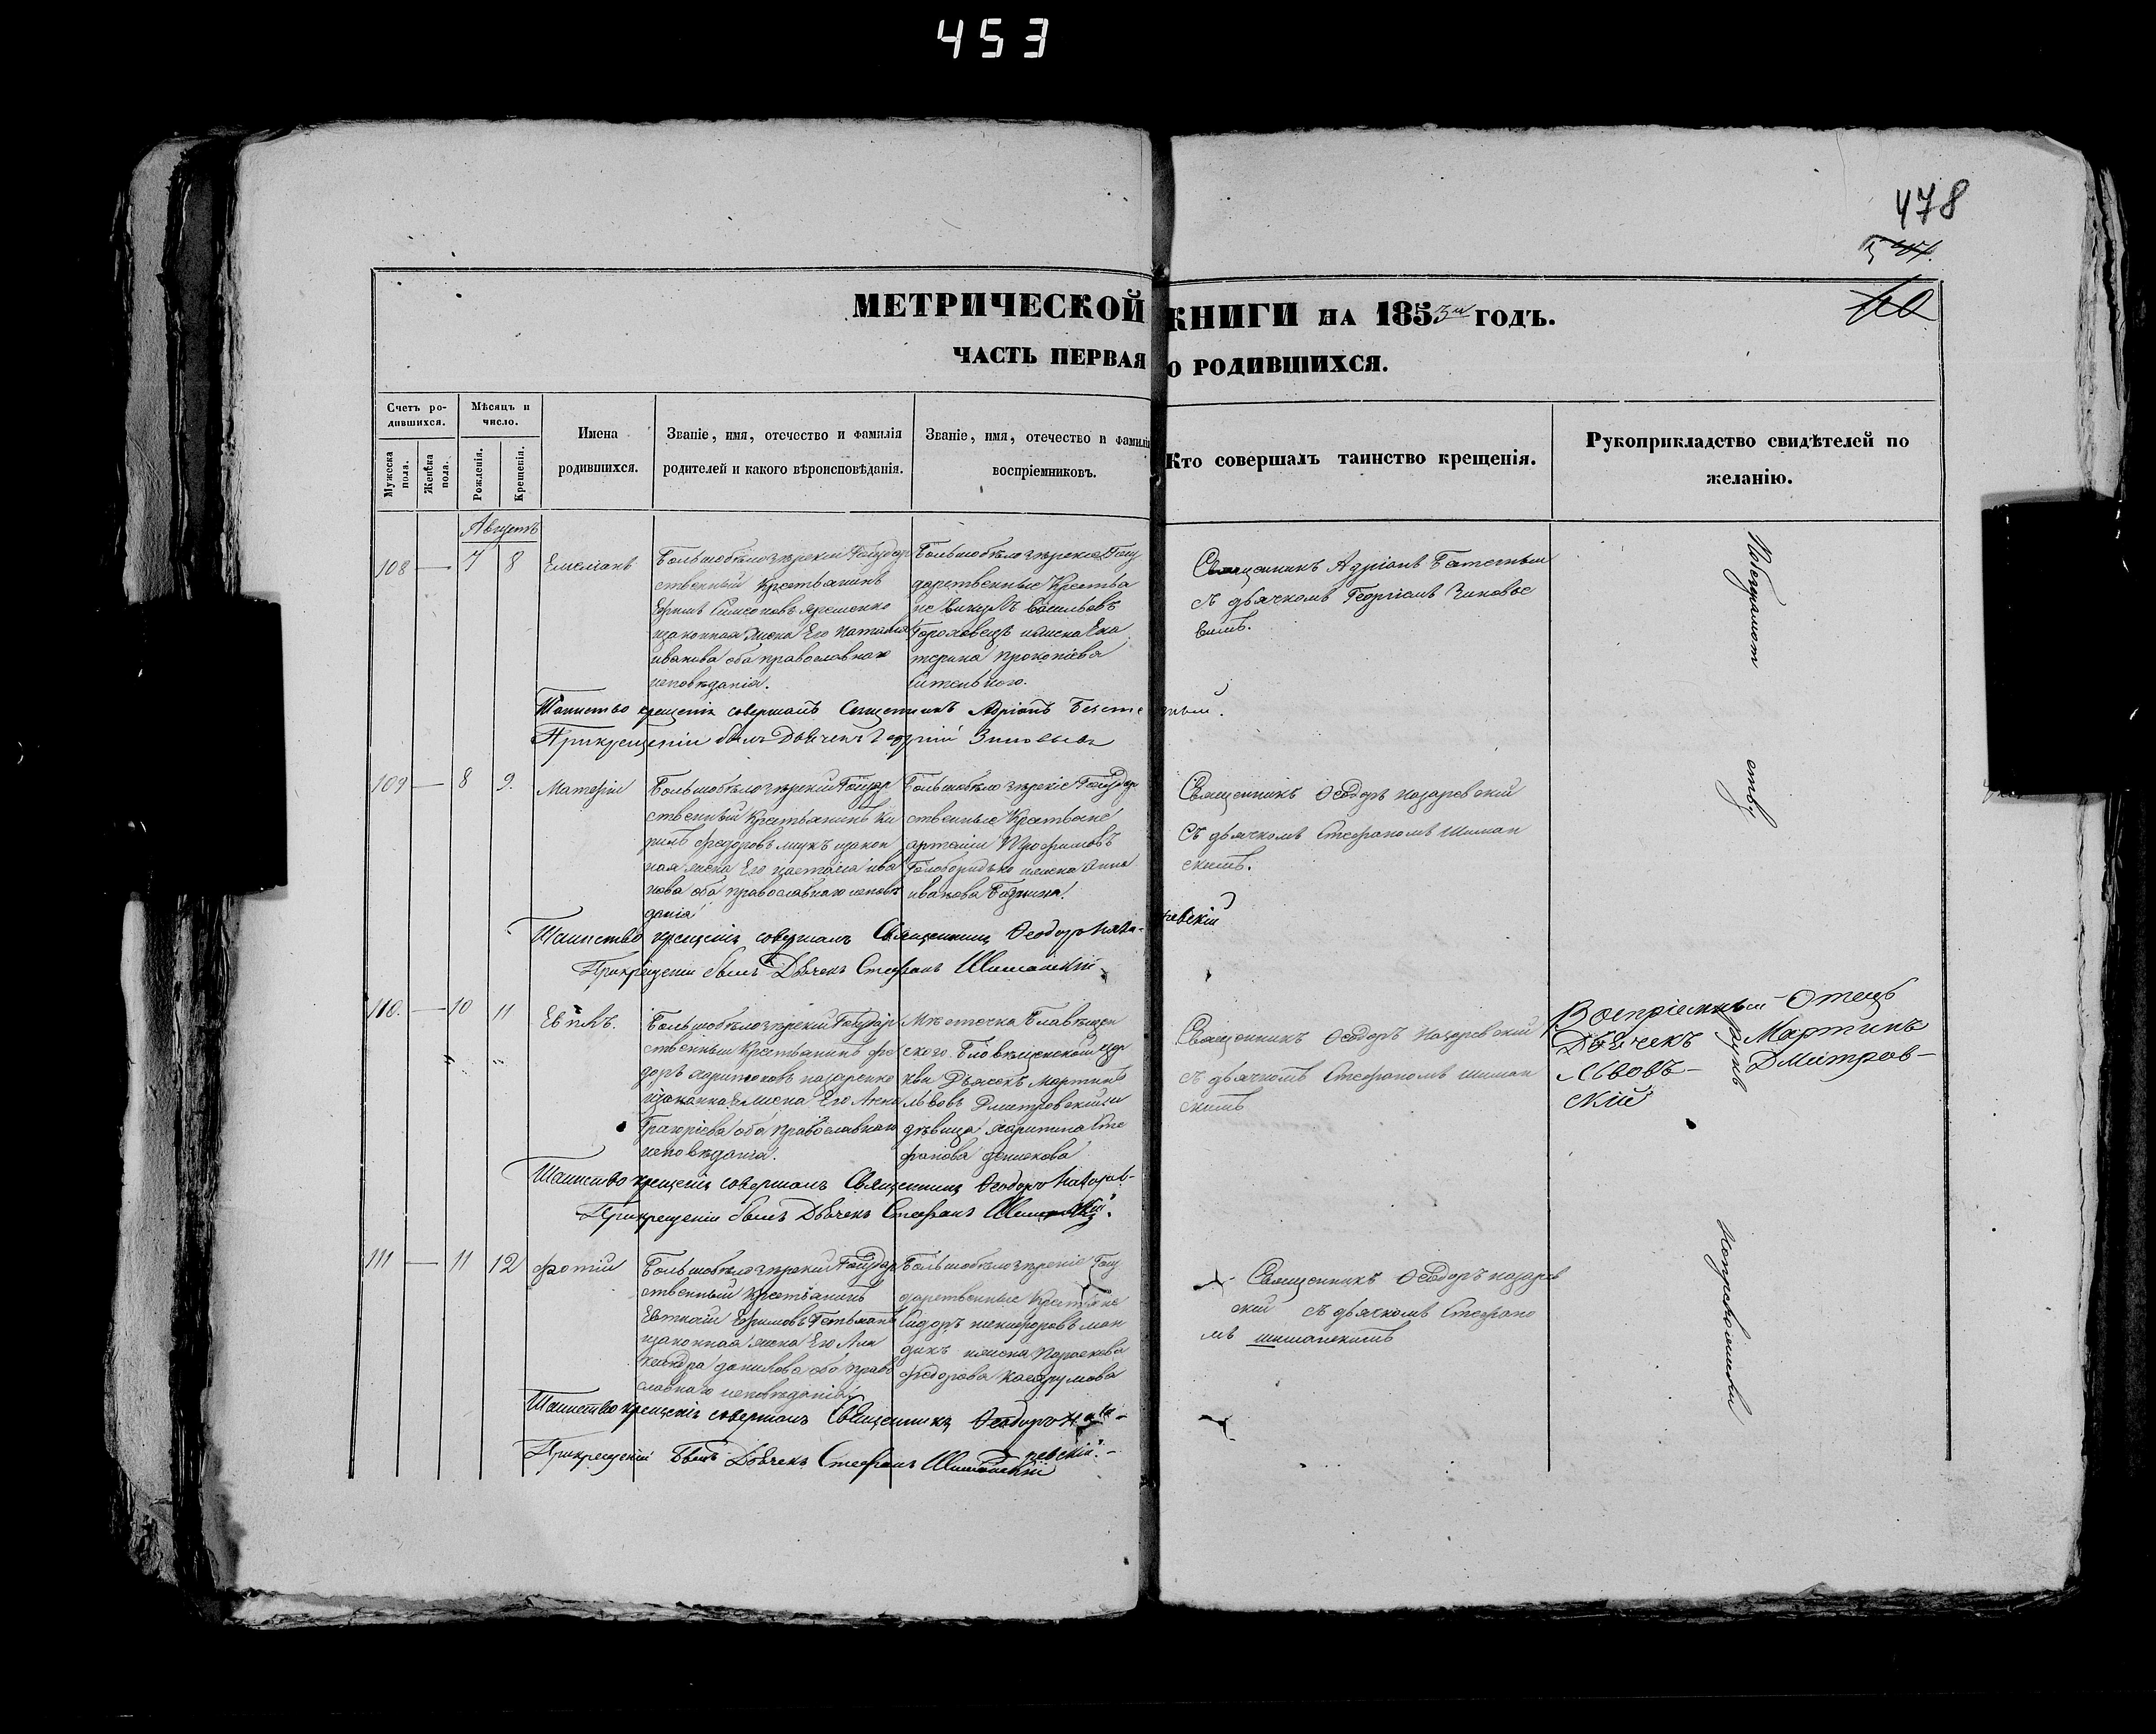 453
478
МЕТРИЧЕСКОЙ КНИГИ НА 1853й ГОДЪ.
ЧАСТЬ ПЕРВАЯ О РОДИВШИХСЯ.
Счетъ ро-
дившихся.
Мужеска пола.
Женска пола.
Мѣсяцъ и
число.
Рожденія.
Крещенія.
Имена
родившихся.
Званіе, имя, отечество и фамилія
родителей и какого вѣроисповѣданія.
Званіе, имя, отечество и фамилія
воспріемниковъ.
Кто совершалъ таинство крещенія.
Рукоприкладство свидѣтелей по
желанію.
Августъ
108 — 7 8 Емеліанъ
Большобѣлозѣрскій Государ
ственный Крестьянинъ
Ефимъ Симеоновъ Яременко
изаконная жена Его Наталія
иванова оба православнаго
исповѣданія.
Большобѣлозѣрскіе Госу
дарственные Крестья
не Васильевъ
Гороховецъ ижена Ека
терина Прокопіева
Священникъ Адріанъ
съ дьячкомъ Георгіемъ Зиновье
вимъ.
Таинство крещенія совершалъ Священникъ Адріанъ
Прикрещеніи былъ Дьячекъ Георгій Зиновьевъ
109 — 8 9. Матфій
Большобѣлозѣрскій Государ
ственный Крестьянинъ Ки
рилъ Федоровъ изакон
ная жена Его Наталіа ива
нова оба православнаго исповѣ
данія
Большобѣлозѣрскіе Государ
ственные Крестьяне
Трофимовъ
Голобородько ижена Анна
иванова
Священникъ Ѳеодоръ Назаревскій
съ дьячкомъ Стефаномъ Шиман
скимъ.
Таинство крещенія совершалъ Священникъ Ѳеодоръ Наза-
ревскій
Прикрещеніи былъ Дьячекъ Стефанъ Шиманскій
110. — 10 11 Евплъ.
Большобѣлозѣрскій Государ
ственный Крестьянинъ Фе
доръ Харитоновъ Назаренко
изаконная жена Его
оба Православнаго
исповѣданія.
Мѣстечка Благовѣщен
ского Благовѣщенской цер
кви Дьячекъ Мартинъ
Львовъ Дмитровскій и
дѣвица Харитина Сте
фанова
Священникъ Ѳеодоръ Назаревскій
съ дьячкомъ Стефаномъ Шиман
скимъ
Воспріемный Отецъ
Дьячекъ Мартинъ
Львовъ— Дмитров—
скій
Таинство крещенія совершалъ Священникъ Ѳеодоръ Назарев-
Прикрещеніи былъ Дьячекъ Стефанъ Шиманскій.
111 — 11 12 Фотій
Большобѣлозѣрскій Государ
ственный Крестьянинъ
Евтихій Ефимовъ Гетьманъ
изаконная жена Его Але
ксандра Данилова оба Право
славнаго исповѣданія
Большобѣлозѣрскіе Госу
дарственные Крестьяне
Сидоръ Никифоровъ ман
дикъ ижена Параскева
Федорова
Священникъ Ѳеодоръ Назарев
скій съ дьячкомъ Стефано
мъ шиманскимъ
Таинство крещенія совершалъ Священникъ Ѳеодоръ Наза-
ревскій.—
Прикрещеніи былъ Дьячекъ Стефанъ Шиманскій